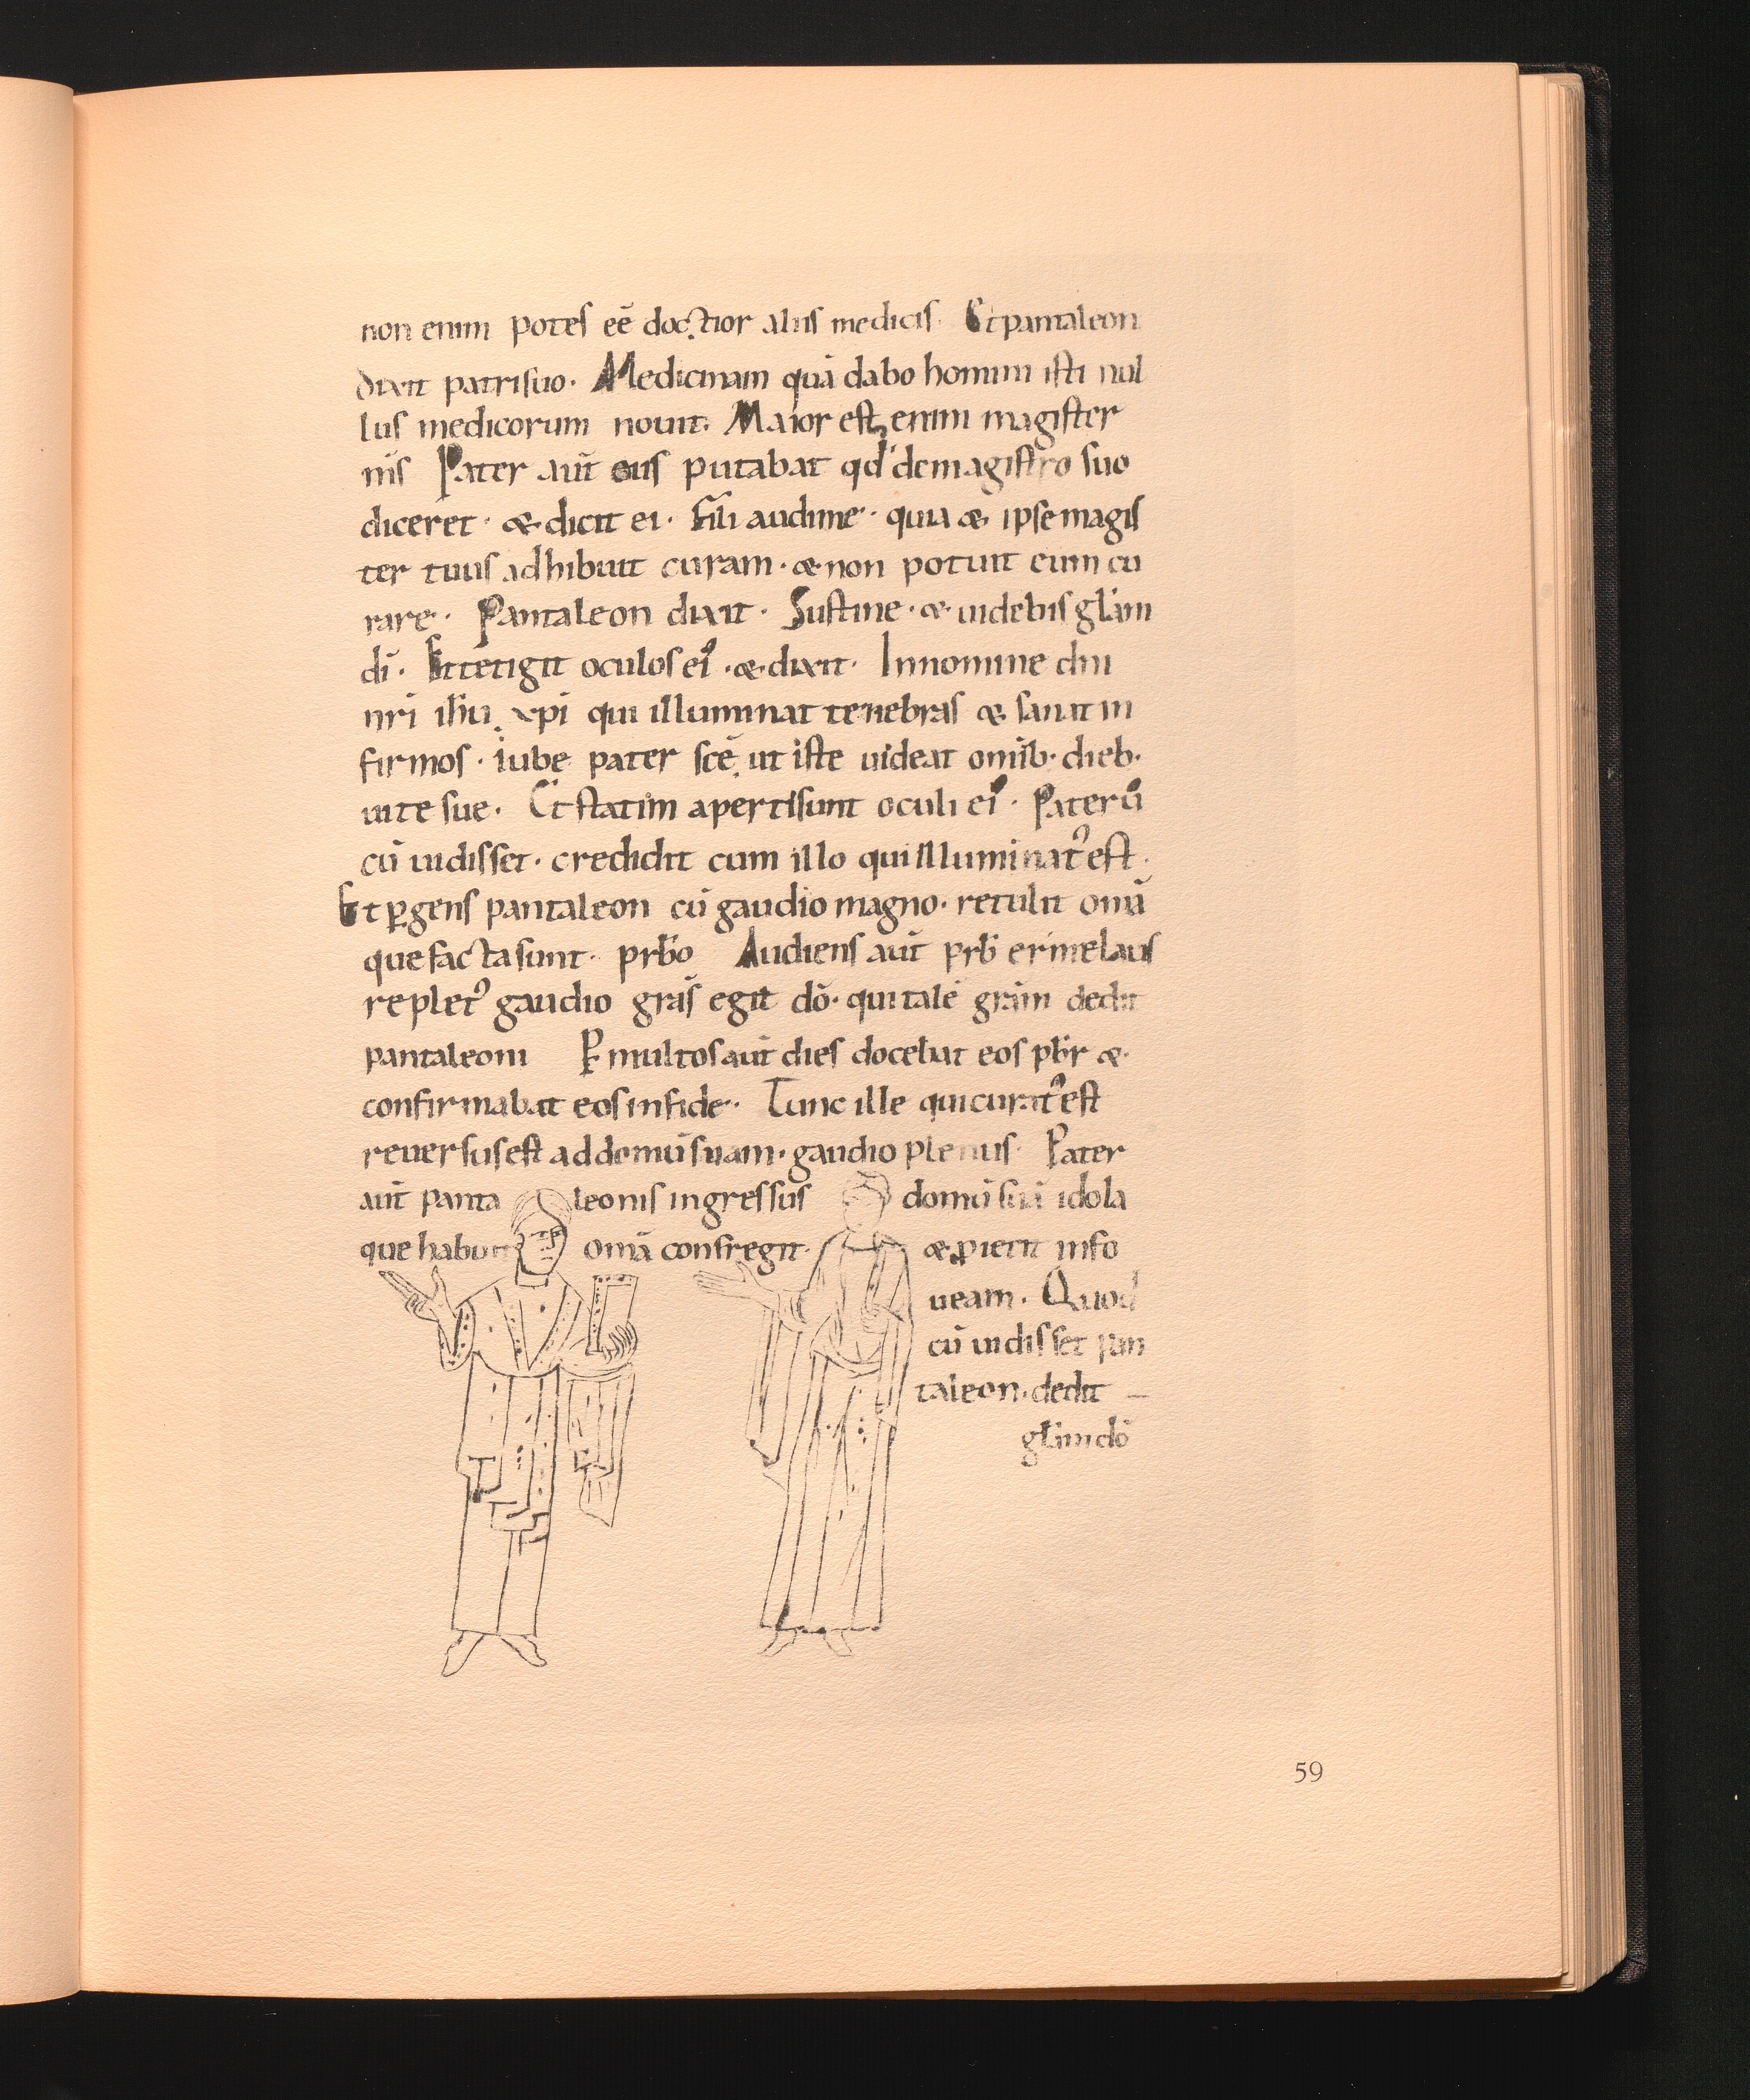 non enim potes eē doctior aliis medicis. Et pantaleon
dixit patri suo. Medicinam quā dabo homini isti nul
lus medicorum nouit. Maior est enim magister
m̄s Pater aut̄ eius putabat qd' de magistro suo
diceret. & dicit ei. Fili audi me. quia & ipse magis
ter tuus adhibuit curam. & non potuit eum cu
rare. Pantaleon dixit. Sustine. & uidebis gl̄am
dī. Et tetigit oculos ei᾽. & dixit. In nomine dn̄i
nr̄i ih̄u xp̄i qui illuminat tenebras & sanat in
firmos. iube pater sc̄e ut iste uideat omīb. dieb.
uite sue. Et statim aperti sunt oculi ei᾽. Pater ū
cū uidisset. credidit cum illo qui illuminat᾽ est.
Et ꝑgens pantaleon cū gaudio magno. retulit om̄a
que facta sunt. prb̄o Audiens aut̄ prb̄ ermelaus
replet᾽ gaudio grās egit dō. qui talē grām dedit
pantaleoni Ꝑ multos aut̄ dies docebat eos pb̄r &
confirmabat eos in fide. Tunc ille qui curat᾽ est
reuersus est ad domū suam. gaudio plenus. Pater
aut̄ panta leonis ingressus domū suā idola
que habuit om̄a confregit. & ꝓiecit in fo
ueam. Quod
cū uidisset pan
taleon. dedit –
gl̄am dō
59